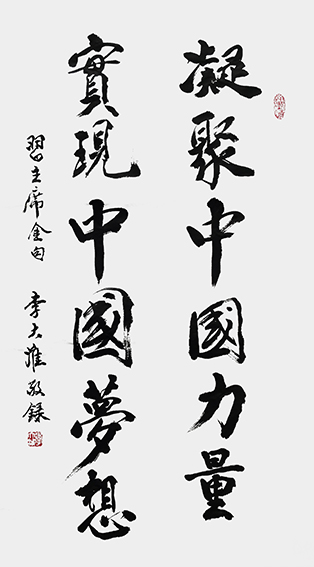 凝聚中國力量
實現中國夢想
習主席金句 李大維敬録